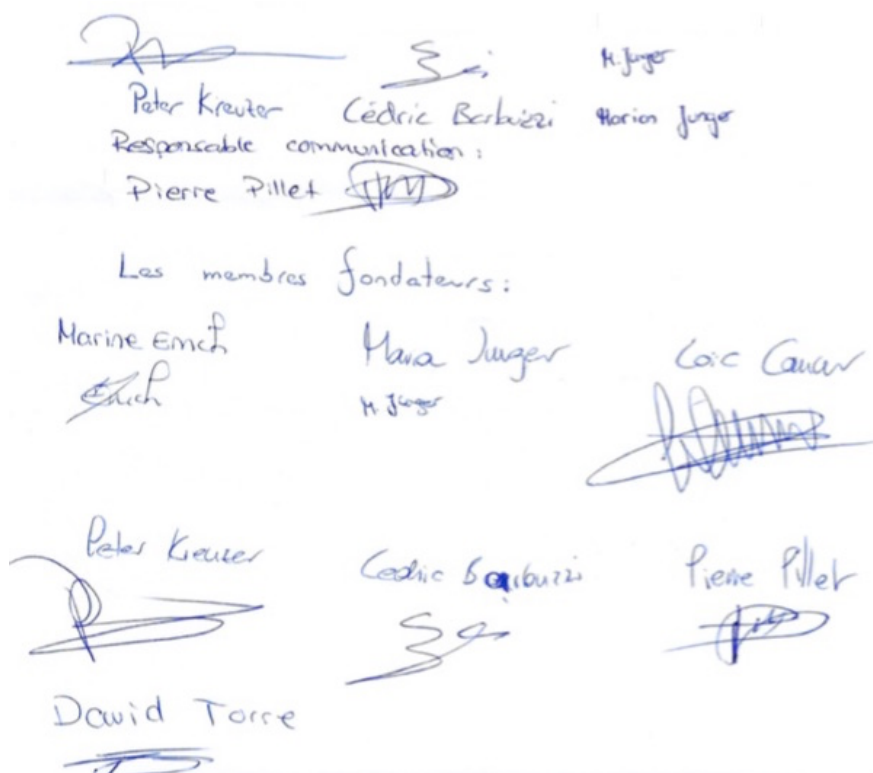 M. Junger
Peter Kreuzer Cédric Barbuzzi Marion Junger
Responsable communication :
Pierre Pillet
Les membres fondateurs :
Marine Emch Junger Loïc
Emch M. Junger
Peter Kreuzer Cédric Barbuzzi Pierre Pillet
David Torre